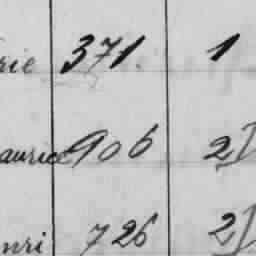 rie 371. 1
aurice 906 2
nri 726 2